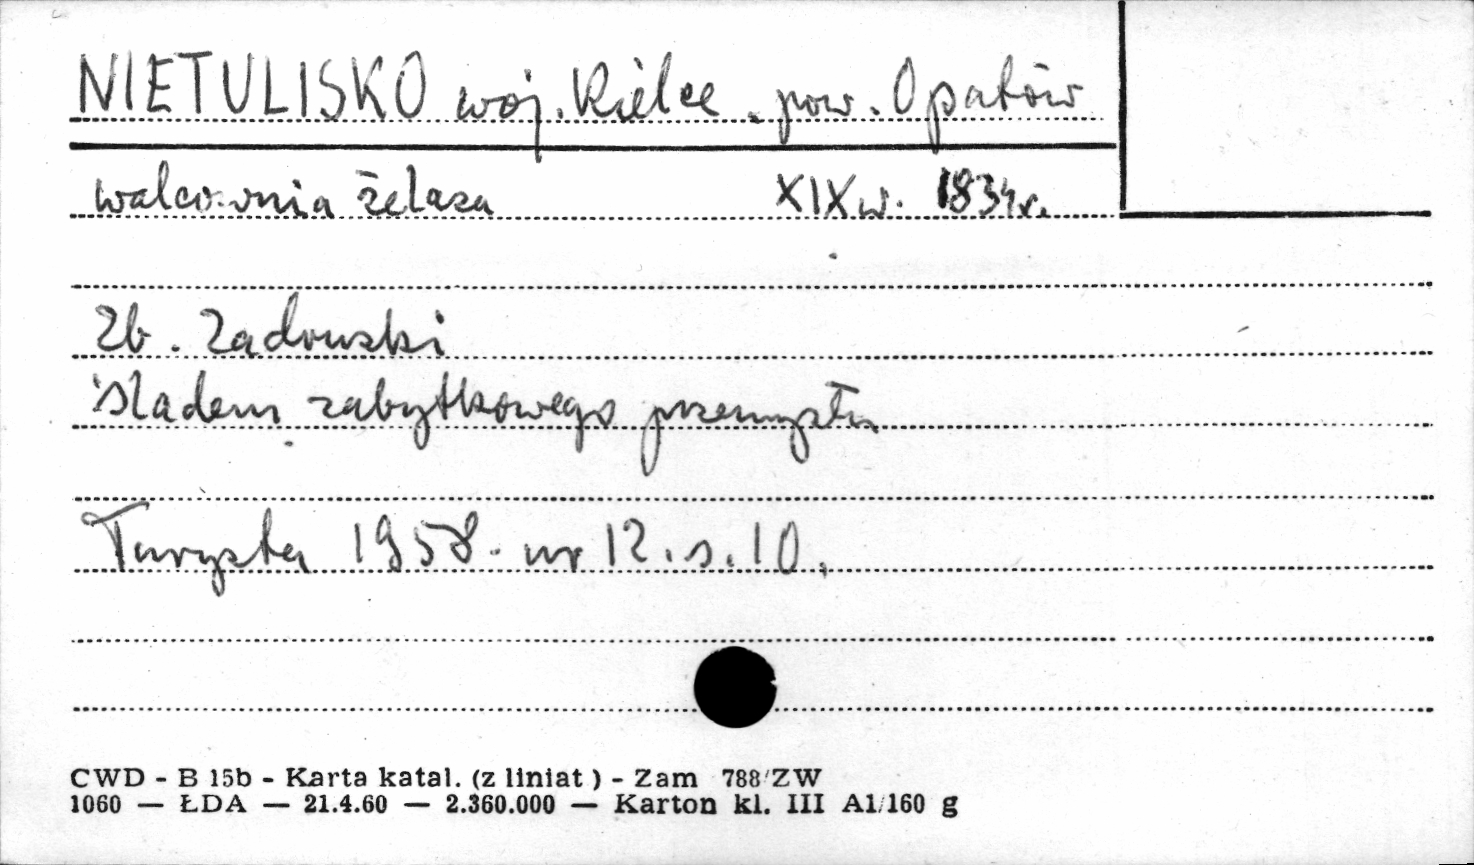 NIETULISKO woj. Kielce. pow. Opatów
walcownia żelaza XIX w. 1834 r.
Zb. Zadowski
śladem zabytkowego przemysłu
Turysta 1958. nr 12. s. 10.
CWD - B 15b - Karta katal. (z liniat) - Zam 788/ZW
1060 — ŁDA — 21.4.60 — 2.360.000 — Karton kl. III A1/160 g